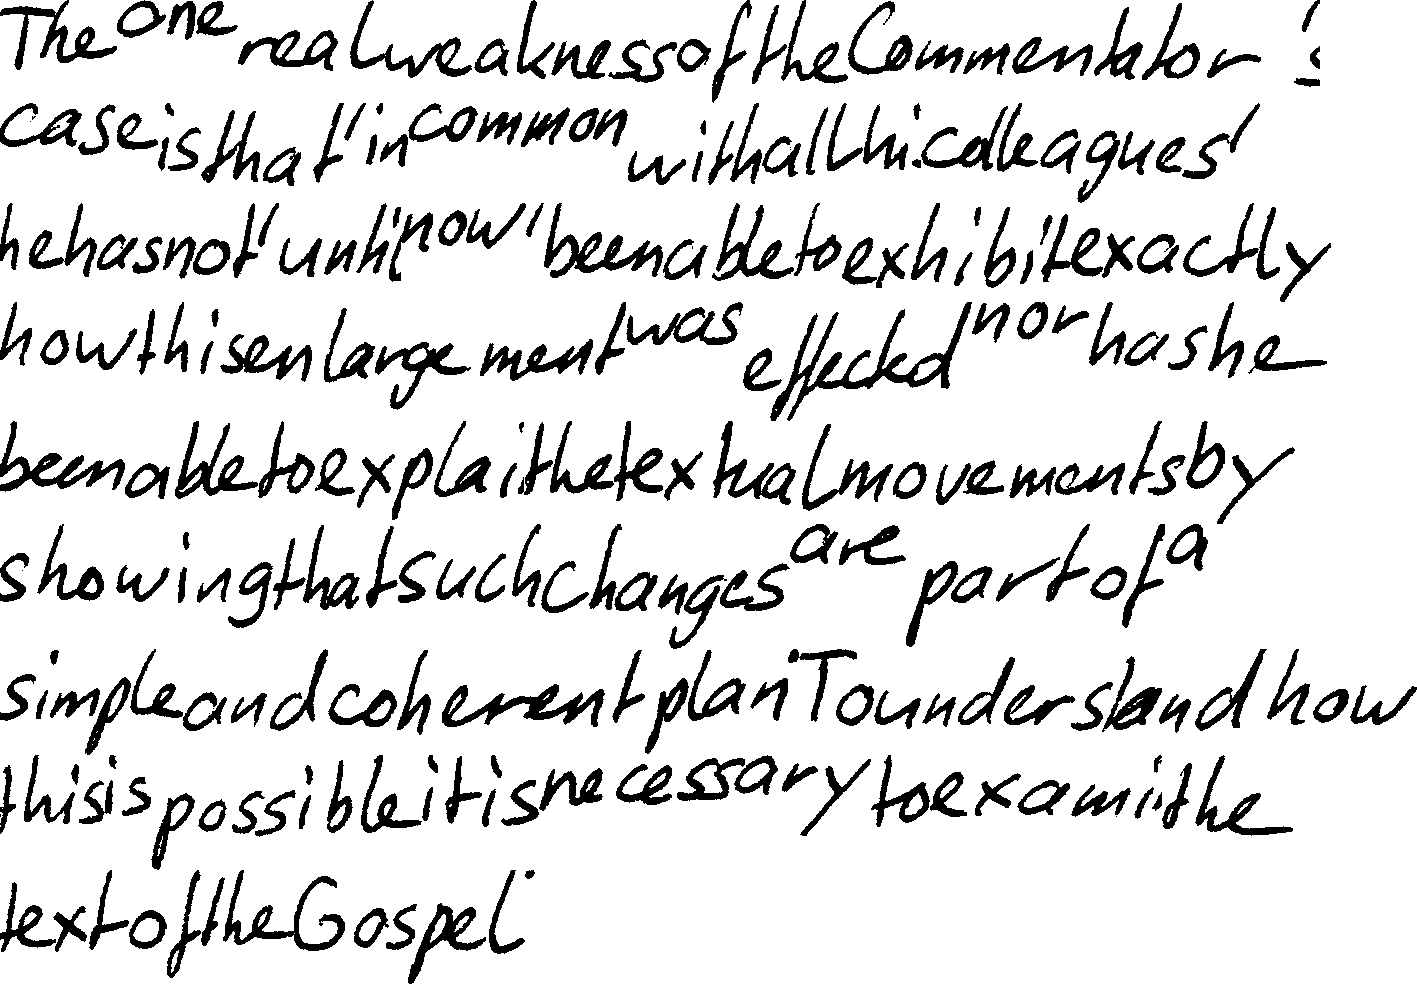 The one real weakness of the Commentator 's
case is that ' in common with all hi. colleagues '
he has not ' until now ' been able to exhibit exactly
how this enlargement was effected nor has he
been able to explai the textual movements by
showing that such changes are part of a
simple and coherent plan . To understand how
this is possible it is necessary to exami. the
text of the Gospel .